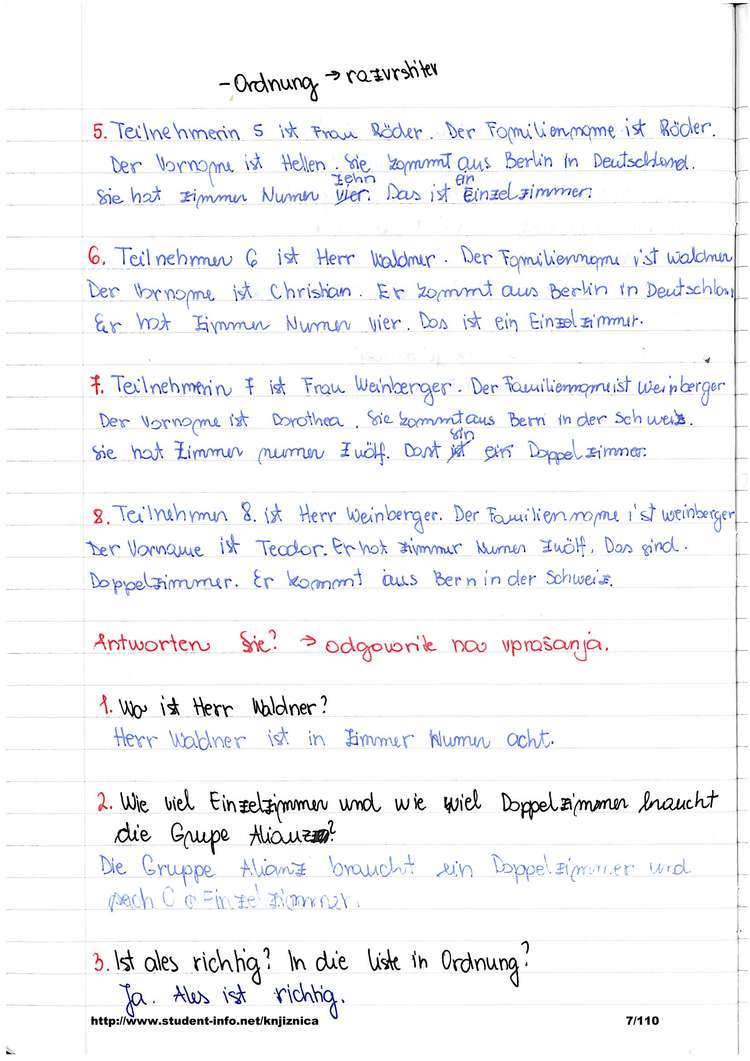 - Ordnung → razvrstitev
5. Teilnehmerin 5 ist Frau Röder. Der Familienname ist Röder.
Der Vorname ist Hellen. Sie kommt aus Berlin in Deutschland.
zehn ein
Sie hat zimmer Numer vier. Das ist Einzelzimmer.
6. Teilnehmer 6 ist Herr Waldner. Der Familienname ist waldner
Der Vorname ist Christian. Er kommt aus Berlin in Deutschlan
Er hat Zimmer Numer vier. Das ist ein Einzelzimmer.
7. Teilnehmerin 7 ist Frau Weinberger. Der Familienname ist weinberger
Der Vorname ist Dorothea. Sie kommt aus Bern in der Schweiz.
sin
Sie hat Zimmer numer Zwölf. Dast ist ein Doppelzimmer.
8. Teilnehmer 8. ist Herr Weinberger. Der Familienname ist weinberger
Der Vorname ist Teodor. Er hat zimmer Numer Zwölf. Das sind.
Doppelzimmer. Er kommt aus Bern in der Schweiz.
Antworten Sie? → odgovorite na vprašanja.
1. Wo ist Herr Waldner?
Herr Waldner ist in Zimmer Numer acht.
2. Wie viel Einzelzimmer und wie viel Doppelzimmer braucht
die Grupe Alianz?
Die Gruppe Alianz braucht ein Doppelzimmer und
Einzelzimmer.
3. Ist ales richtig? In die liste in Ordnung?
Ja. Ales ist richtig.
http://www.student-info.net/knjiznica 7/110